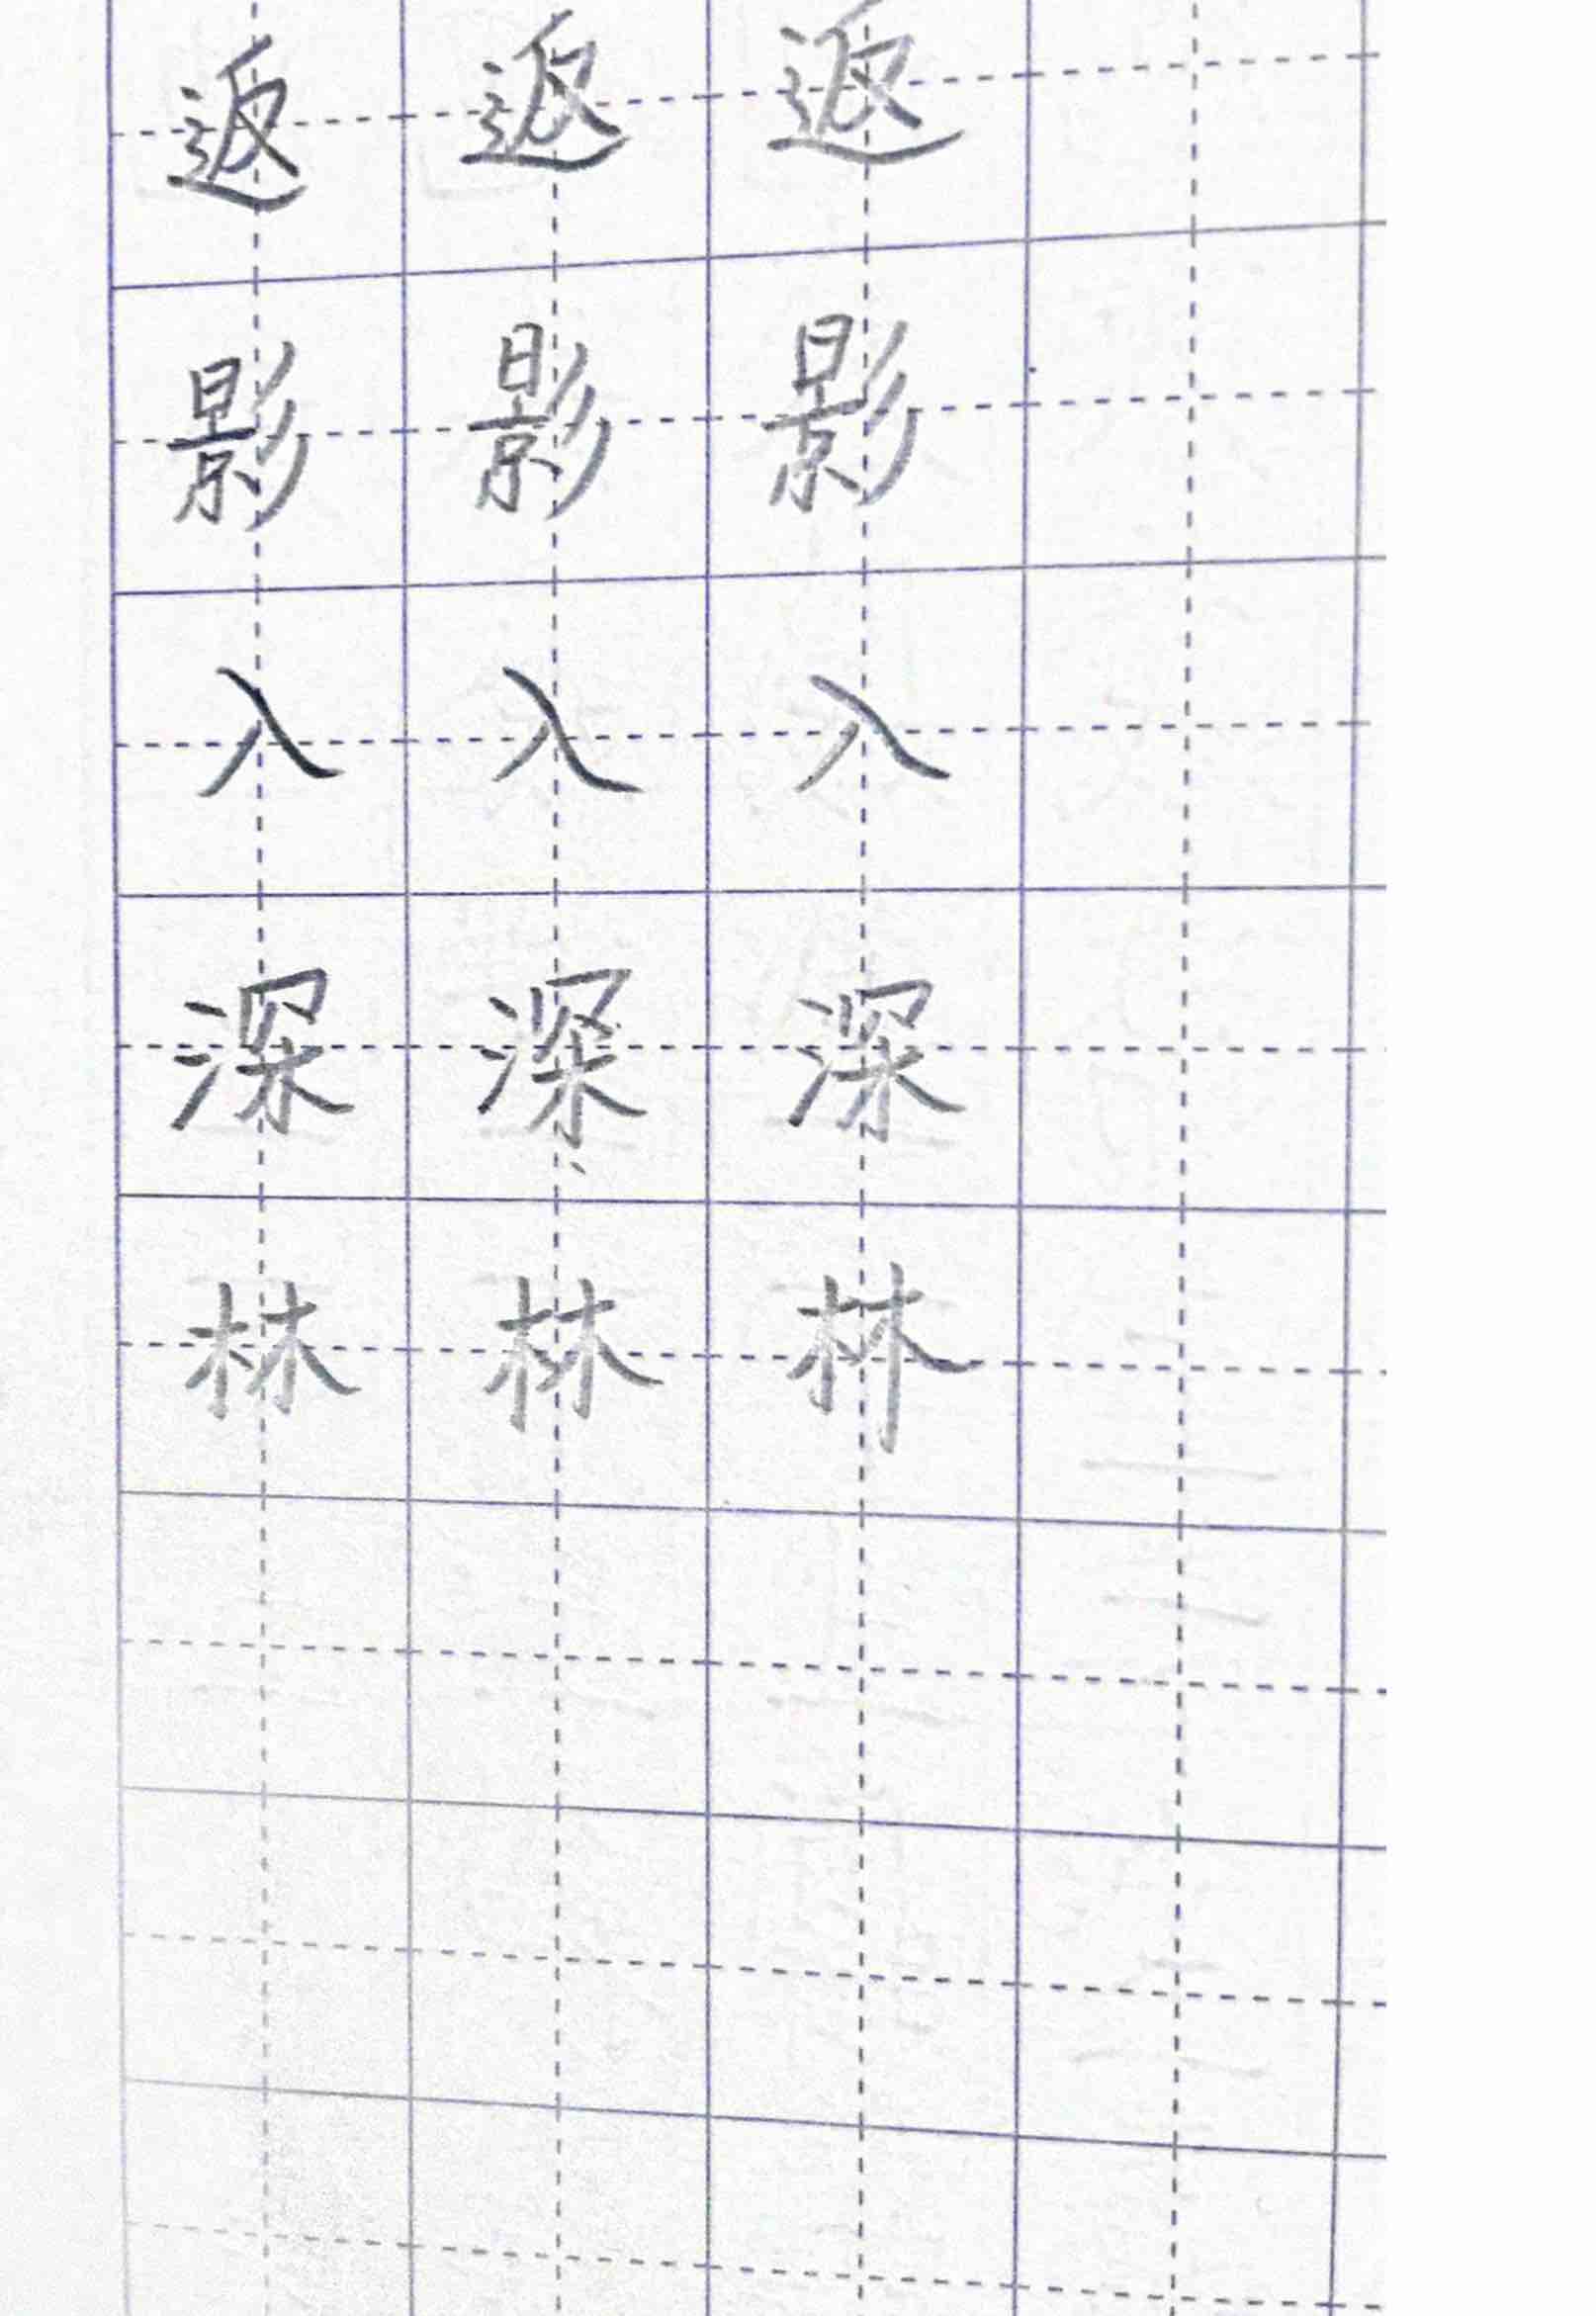 返 返 返
影 影 影
入 入 入
深 深 深
林 林 林